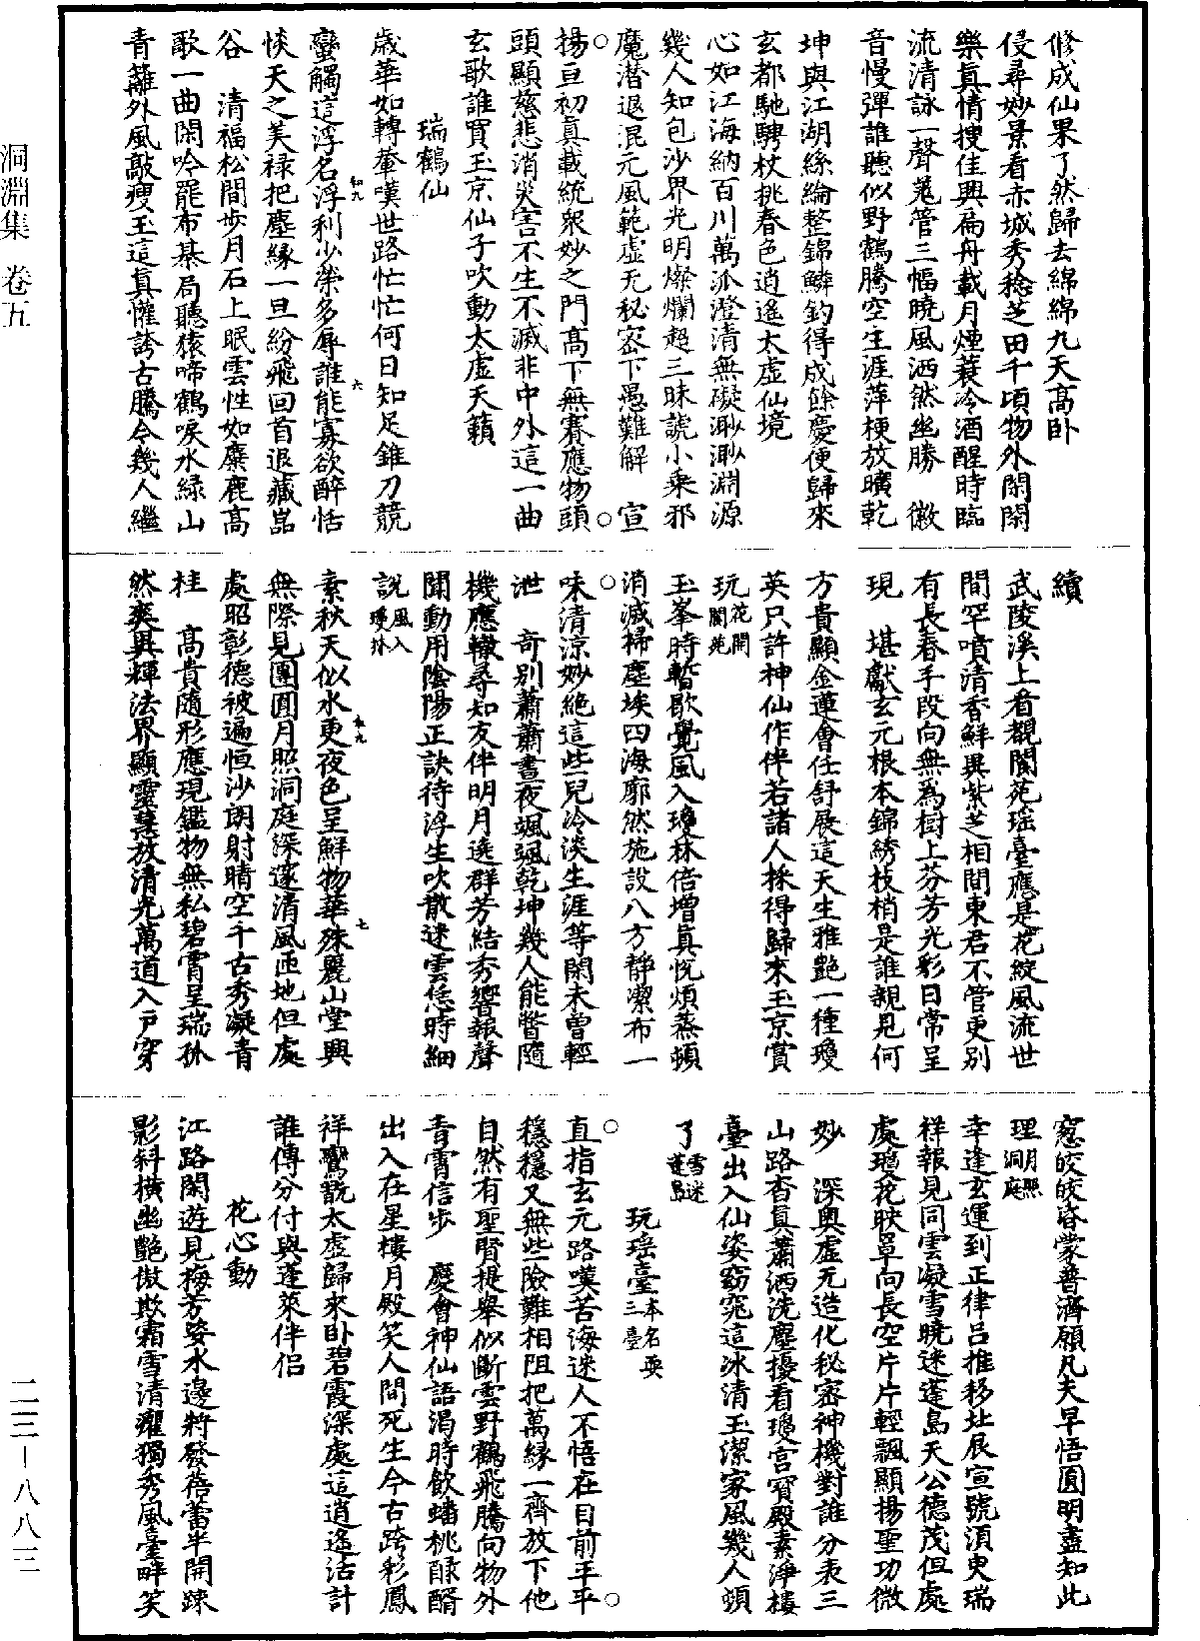 修成仙果了然歸去綿綿九天高臥
侵尋妙景看赤城秀稔芝田千頃物外閑閑
樂真情搜佳興扁舟載月煙蓑冷酒醒時臨
流清詠一聲羌管三幅曉風洒然幽勝　徽
音慢彈誰聽似野鶴騰空生涯萍梗放曠乾
坤與江湖絲綸整錦鱗釣得成餘慶便歸來
玄都馳騁杖挑春色逍遙太虛仙境
心如江海納百川萬派澄清無礙渺渺淵源
幾人知包沙界光明燦爛超三昧諕小乘邪
魔潛退混元風範虛无秘密下愚難解　宣
揚亘初真載統衆妙之門高下無賽應物頭
頭顯慈悲消災害不生不滅非中外這一曲
玄歌誰買玉京仙子吹動太虛天籟
瑞鶴仙
歲華如轉輦嘆世路忙忙何日知足錐刀競
蠻觸這浮名浮利少榮多辱誰能寡欲醉恬
惔天之美祿把塵緣一旦紛飛回首退藏嵓
谷　清福松間步月石上眠雲性如麋鹿高
歌一曲閑吟罷布棊局聽猿啼鶴唳水綠山
青籬外風敲瘦玉這真懽誇古騰今幾人繼
續
武陵溪上看覩閬苑瑤臺應是花綻風流世
間罕噴清香鮮異紫芝相間東君不管更別
有長春手段向無爲樹上芬芳光彩日常呈
現　堪獻玄元根本錦綉枝梢是誰親見何
方貴顯金蓮會任舒展這天生雅艷一種瓊
英只許神仙作伴若諸人採得歸來玉京賞
玩花開閬苑
玉峯時暫歇覺風入瓊林倍增真悅煩蒸頓
消滅掃塵埃四海廓然施設八方靜潔布一
味清涼妙絕這些兒冷淡生涯等閑未曾輕
泄　奇別蕭蕭晝夜颯颯乾坤幾人能瞥隨
機應轍尋知友伴明月選群芳結秀響報聲
聞動用陰陽正訣待浮生吹散迷雲恁時細
說風入瓊林
素秋天似水更夜色呈鮮物華殊麗山堂興
無際見團圓月照洞庭深邃清風匝地但處
處昭彰德被遍恒沙朗射晴空千古秀凝青
桂　高貴隨形應現鑑物無私碧霄呈瑞孫
然爽異輝法界顯靈慧放清光萬道入戶穿
窻皎皎昏蒙普濟願凡夫早悟圓明盡知此
理月照洞庭
幸逢玄運到正律呂推移北辰宣號須臾瑞
祥報見同雲凝雪曉迷蓬島天公德茂但處
處瓊花映罩向長空片片輕飄顯揚聖功微
妙　深奧虛无造化秘密神機對誰分表三
山路杳真蕭洒洗塵擾看瓊宮寳殿素淨樓
臺出入仙姿窈窕這冰清玉潔家風幾人頓
了雪迷蓬島
玩瑤臺本名耍三臺
直指玄元路嘆苦海迷人不悟在目前平平
穩穩又無些險難相阻把萬緣一齊放下他
自然有聖賢提舉似斷雲野鶴飛騰向物外
青霄信步　慶會神仙語渴時飲蟠桃醁醑
出入在星樓月殿笑人間死生今古跨彩鳳
祥鸞翫太虛歸來臥碧霞深處這逍遙活計
誰傳分付與蓬萊伴侶
花心動
江路閑遊見梅芳姿水邊將發蓓蕾半開踈
影斜橫幽艷傲欺霜雪清癯獨秀風臺畔笑
洞淵集　卷五
二三—八八三